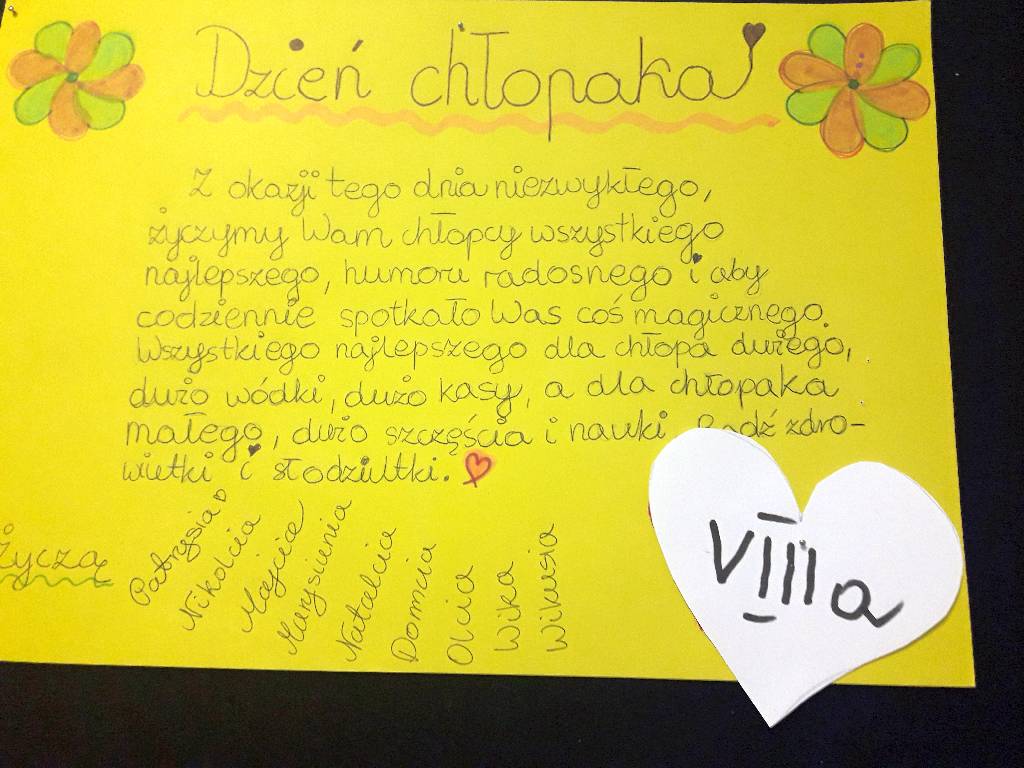 Dzień chłopaka
Z okazji tego dnia niezwykłego,
życzymy Wam chłopcy wszystkiego
najlepszego, humoru radosnego i aby
codziennie spotkało Was coś magicznego.
Wszystkiego najlepszego dla chłopa dużego,
dużo wódki, dużo kasy, a dla chłopaka
małego, dużo szczęścia i nauki. Bądź zdro-
wiutki i słodziutki.
Życzą
Patrysia
Nikolcia
Majcia
Marysiunia
Natalcia
Domcia
Olcia
Wika
Wikusia
VIIIa